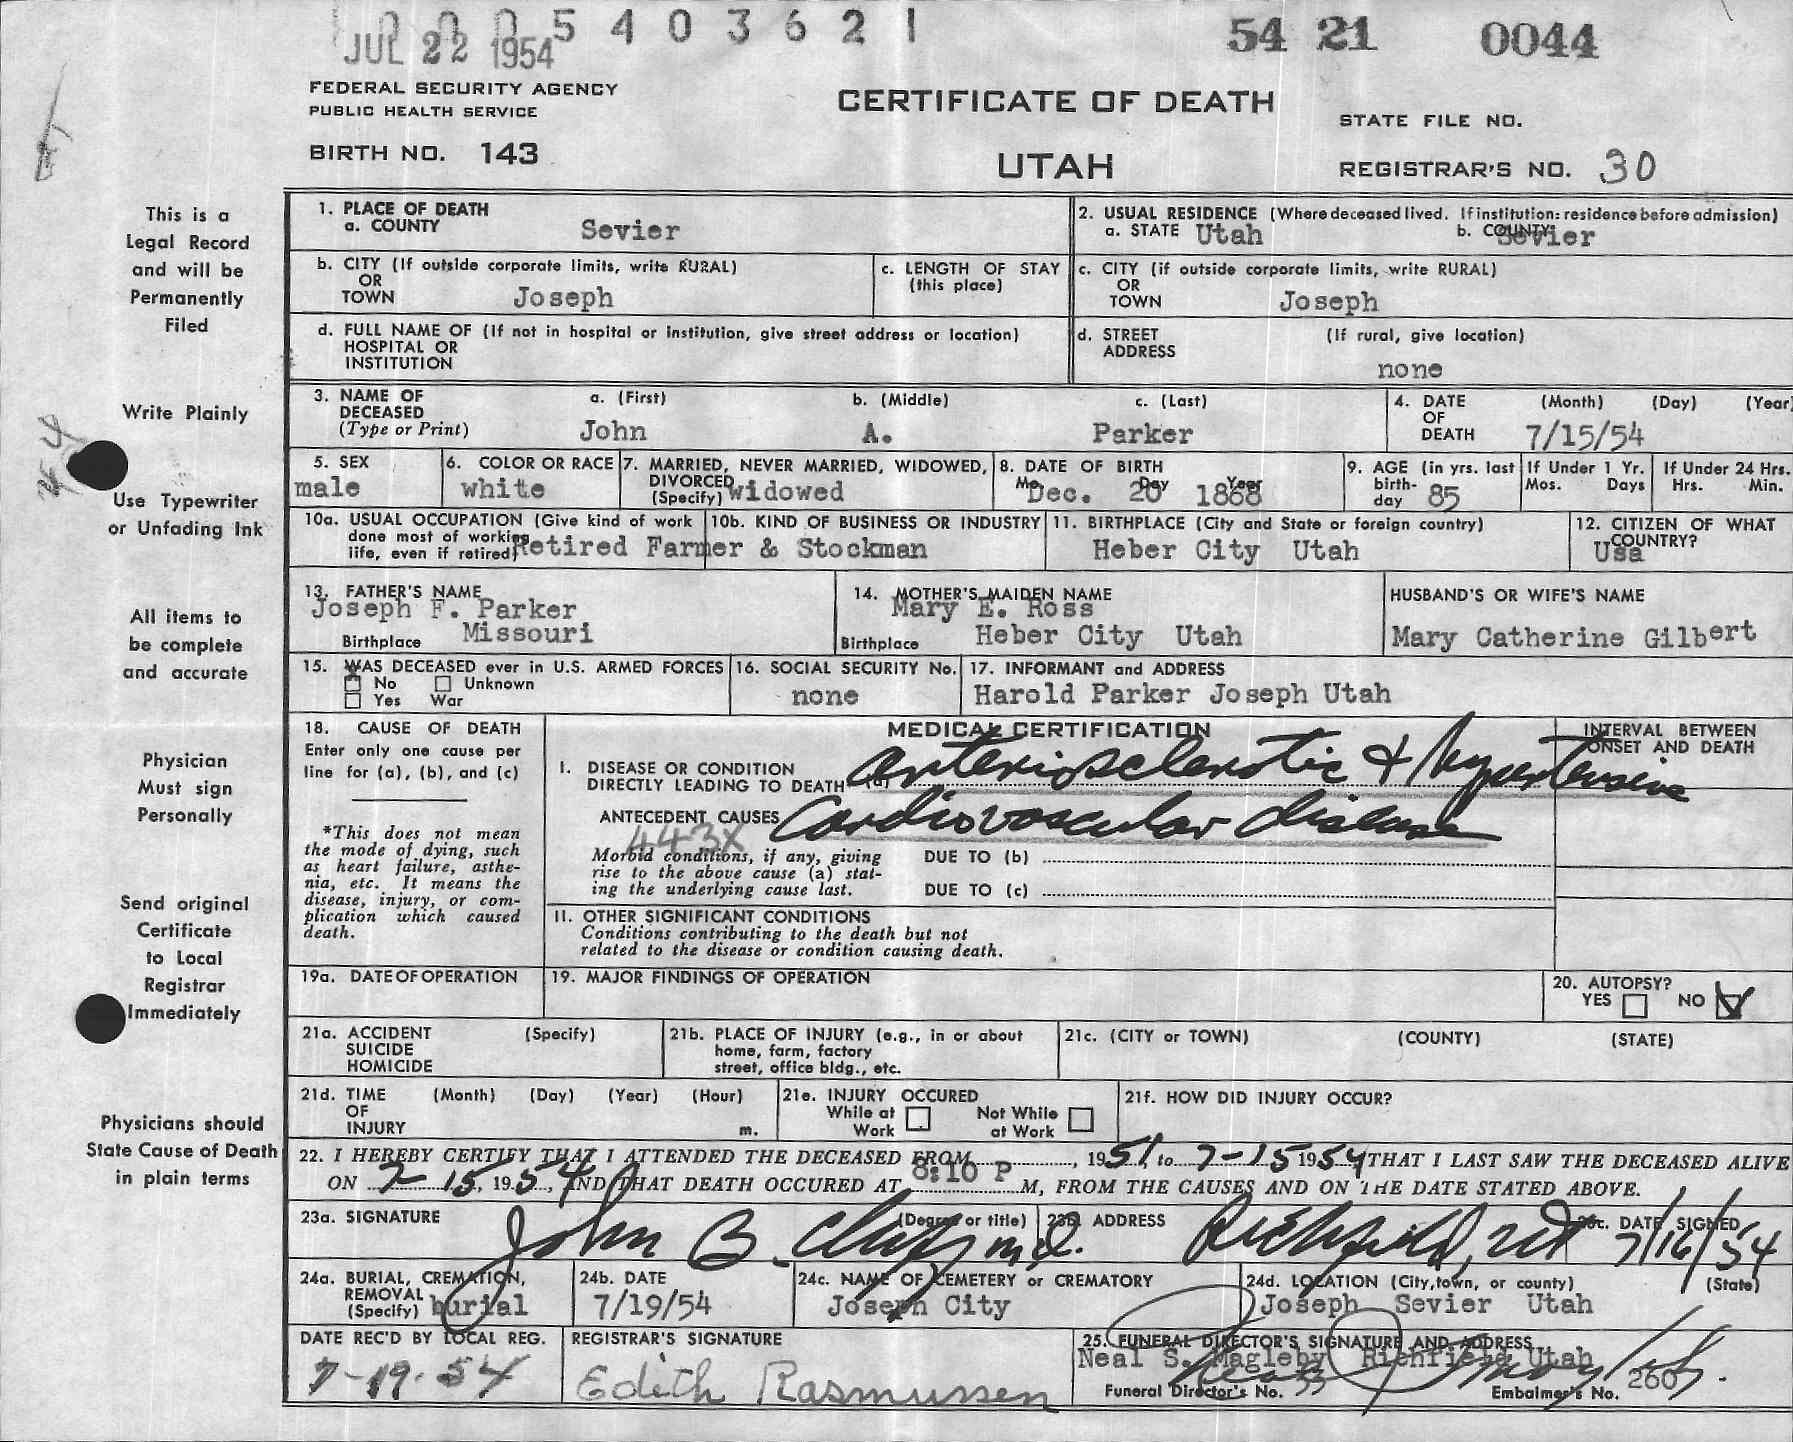 0 0 0 5 4 0 3 6 2 1
JUL 22 1954
54 21 0044
FEDERAL SECURITY AGENCY
PUBLIC HEALTH SERVICE
CERTIFICATE OF DEATH
STATE FILE NO.
BIRTH NO. 143
UTAH
REGISTRAR'S NO. 30
This is a
Legal Record
and will be
Permanently
Filed
Write Plainly
Use Typewriter
or Unfading Ink
All items to
be complete
and accurate
Physician
Must sign
Personally
Send original
Certificate
to Local
Registrar
Immediately
Physicians should
State Cause of Death
in plain terms
1. PLACE OF DEATH
a. COUNTY Sevier
2. USUAL RESIDENCE (Where deceased lived. If institution: residence before admission)
a. STATE Utah b. COUNTY Sevier
b. CITY (If outside corporate limits, write RURAL)
OR
TOWN Joseph
c. LENGTH OF STAY
(this place)
c. CITY (if outside corporate limits, write RURAL)
OR
TOWN Joseph
d. FULL NAME OF (If not in hospital or institution, give street address or location)
HOSPITAL OR
INSTITUTION
d. STREET (If rural, give location)
ADDRESS
none
3. NAME OF a. (First) b. (Middle) c. (Last)
DECEASED
(Type or Print) John A. Parker
4. DATE (Month) (Day) (Year)
OF
DEATH 7/15/54
5. SEX
male
6. COLOR OR RACE
white
7. MARRIED, NEVER MARRIED, WIDOWED,
DIVORCED
(Specify) widowed
8. DATE OF BIRTH
Mo. Day Year
Dec. 20 1868
9. AGE (in yrs. last
birth-
day 85
If Under 1 Yr.
Mos. Days
If Under 24 Hrs.
Hrs. Min.
10a. USUAL OCCUPATION (Give kind of work
done most of working
life, even if retired)
10b. KIND OF BUSINESS OR INDUSTRY
Retired Farmer & Stockman
11. BIRTHPLACE (City and State or foreign country)
Heber City Utah
12. CITIZEN OF WHAT
COUNTRY?
Usa
13. FATHER'S NAME
Joseph F. Parker
Birthplace Missouri
14. MOTHER'S MAIDEN NAME
Mary E. Ross
Birthplace Heber City Utah
HUSBAND'S OR WIFE'S NAME
Mary Catherine Gilbert
15. WAS DECEASED ever in U.S. ARMED FORCES
No Unknown
Yes War
16. SOCIAL SECURITY No.
none
17. INFORMANT and ADDRESS
Harold Parker Joseph Utah
18. CAUSE OF DEATH
Enter only one cause per
line for (a), (b), and (c)
*This does not mean
the mode of dying, such
as heart failure, asthe-
nia, etc. It means the
disease, injury, or com-
plication which caused
death.
MEDICAL CERTIFICATION
INTERVAL BETWEEN
ONSET AND DEATH
I. DISEASE OR CONDITION
DIRECTLY LEADING TO DEATH* (a) arteriosclerotic & hypertensive
ANTECEDENT CAUSES cardiovascular disease
443X
Morbid conditions, if any, giving
rise to the above cause (a) stat-
ing the underlying cause last.
DUE TO (b)
DUE TO (c)
II. OTHER SIGNIFICANT CONDITIONS
Conditions contributing to the death but not
related to the disease or condition causing death.
19a. DATE OF OPERATION
19. MAJOR FINDINGS OF OPERATION
20. AUTOPSY?
YES NO
21a. ACCIDENT (Specify)
SUICIDE
HOMICIDE
21b. PLACE OF INJURY (e.g., in or about
home, farm, factory
street, office bldg., etc.
21c. (CITY or TOWN) (COUNTY) (STATE)
21d. TIME (Month) (Day) (Year) (Hour)
OF
INJURY m.
21e. INJURY OCCURED
While at Work
Not While at Work
21f. HOW DID INJURY OCCUR?
22. I HEREBY CERTIFY THAT I ATTENDED THE DECEASED FROM , 1951, to 7-15 1954, THAT I LAST SAW THE DECEASED ALIVE
ON 7-15, 1954, AND THAT DEATH OCCURED AT 8:10 P M, FROM THE CAUSES AND ON THE DATE STATED ABOVE.
23a. SIGNATURE (Degree or title)
John B. M.D.
23b. ADDRESS
Richfield, Ut
23c. DATE SIGNED
7/16/54
24a. BURIAL, CREMATION,
REMOVAL
(Specify) burial
24b. DATE
7/19/54
24c. NAME OF CEMETERY or CREMATORY
Joseph City
24d. LOCATION (City, town, or county) (State)
Joseph Sevier Utah
DATE REC'D BY LOCAL REG.
7-19-54
REGISTRAR'S SIGNATURE
Edith Rasmussen
25. FUNERAL DIRECTOR'S SIGNATURE AND ADDRESS
Neal S. Magleby Richfield Utah
Funeral Director's No. 33
Embalmer's No. 260